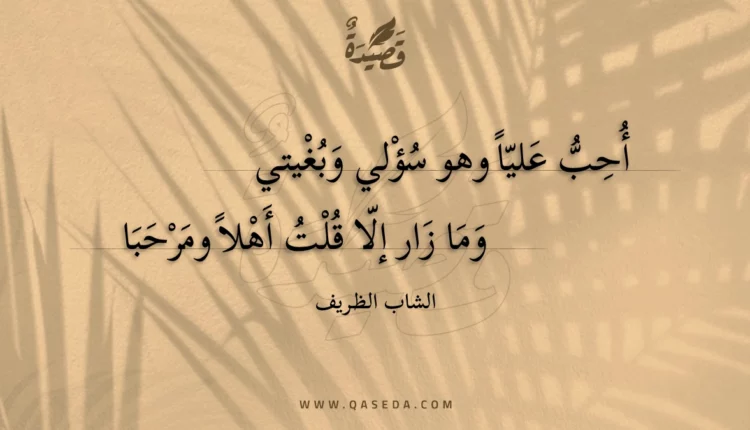 قَصِيدَةٌ
أُحِبُّ عَليّاً وهو سُؤْلي وَبُغْيتي
وَمَا زَار إلّا قُلْتُ أَهْلاً ومَرْحَبَا
الشاب الظريف
WWW.QASEDA.COM